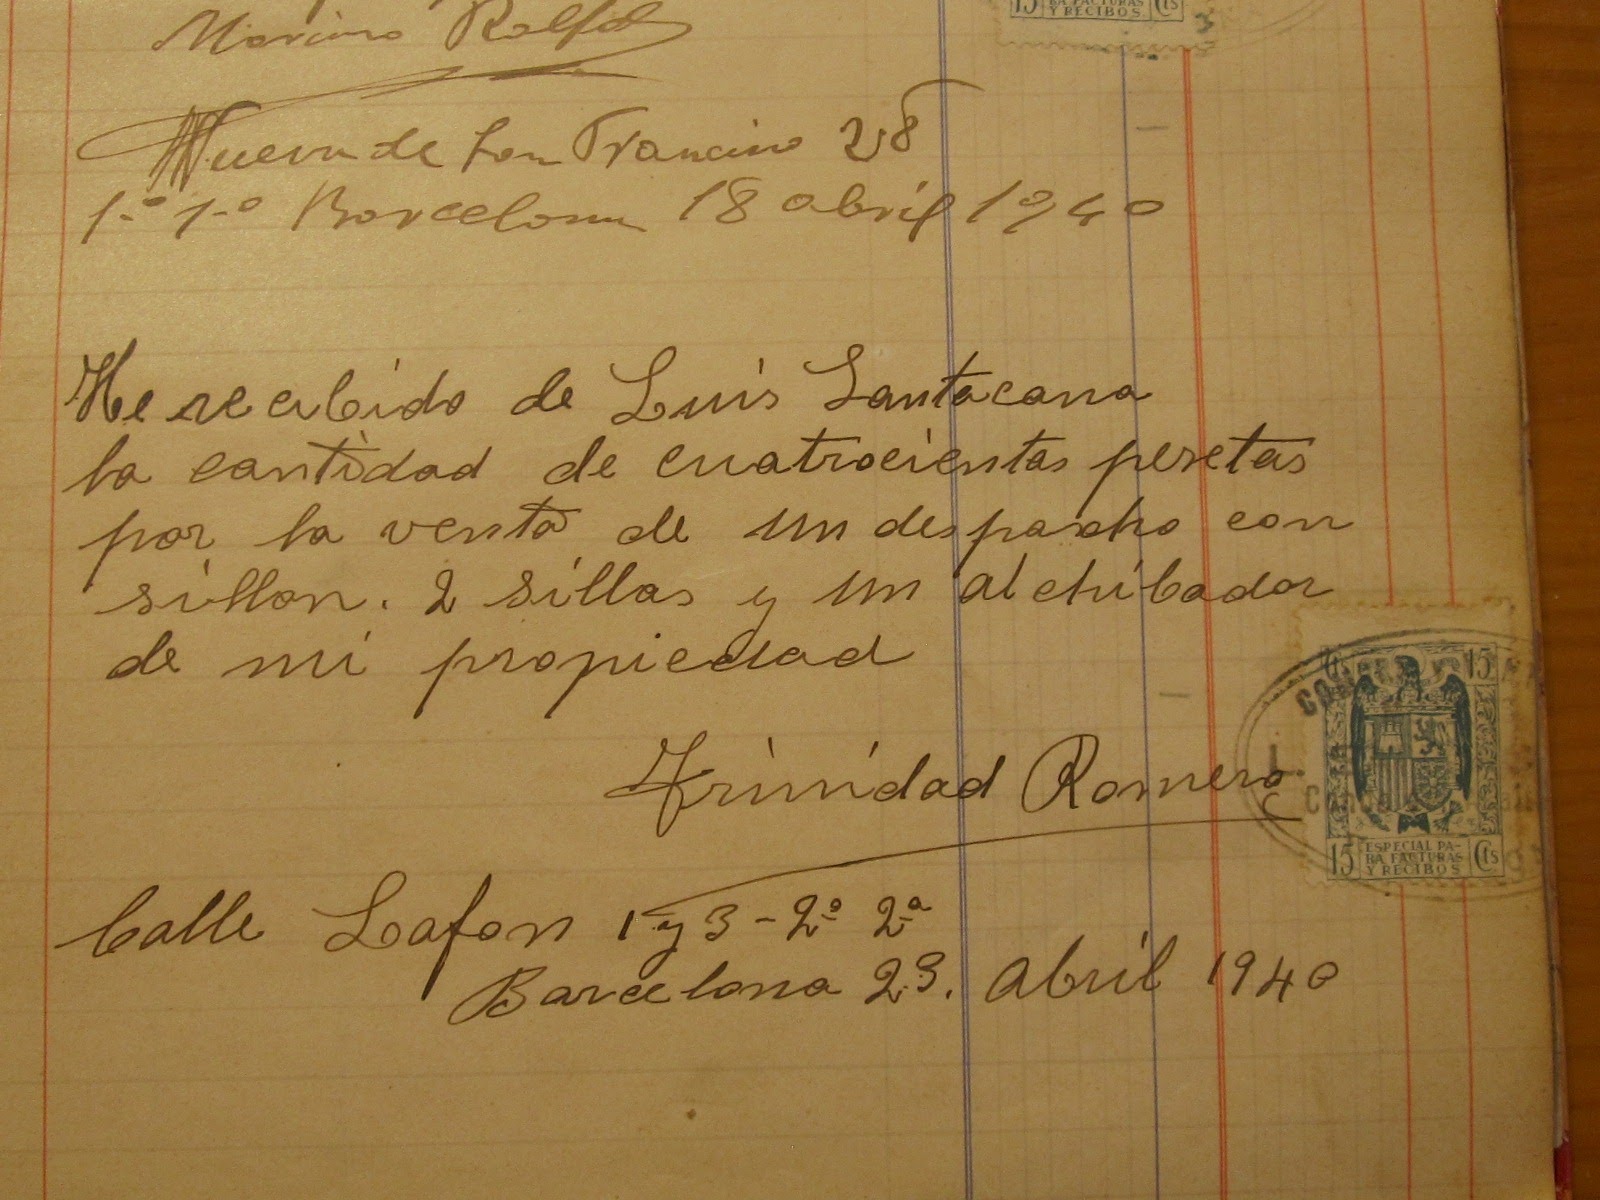 15 RA FACTURAS Y RECIBOS Cts
Mariano Ralfols
Nueva de San Francisco 28
1-º 1-º Barcelona 18 abril 1940
He recibido de Luis Santacana
la cantidad de cuatrocientas pesetas
por la venta de un despacho con
sillon. 2 sillas y un alchibador
de mi propiedad
Trinidad Romero
15
15 ESPECIAL PA- RA FACTURAS Y RECIBOS Cts
Calle Lafon 1 y 3 - 2º 2ª
Barcelona 23. abril 1940